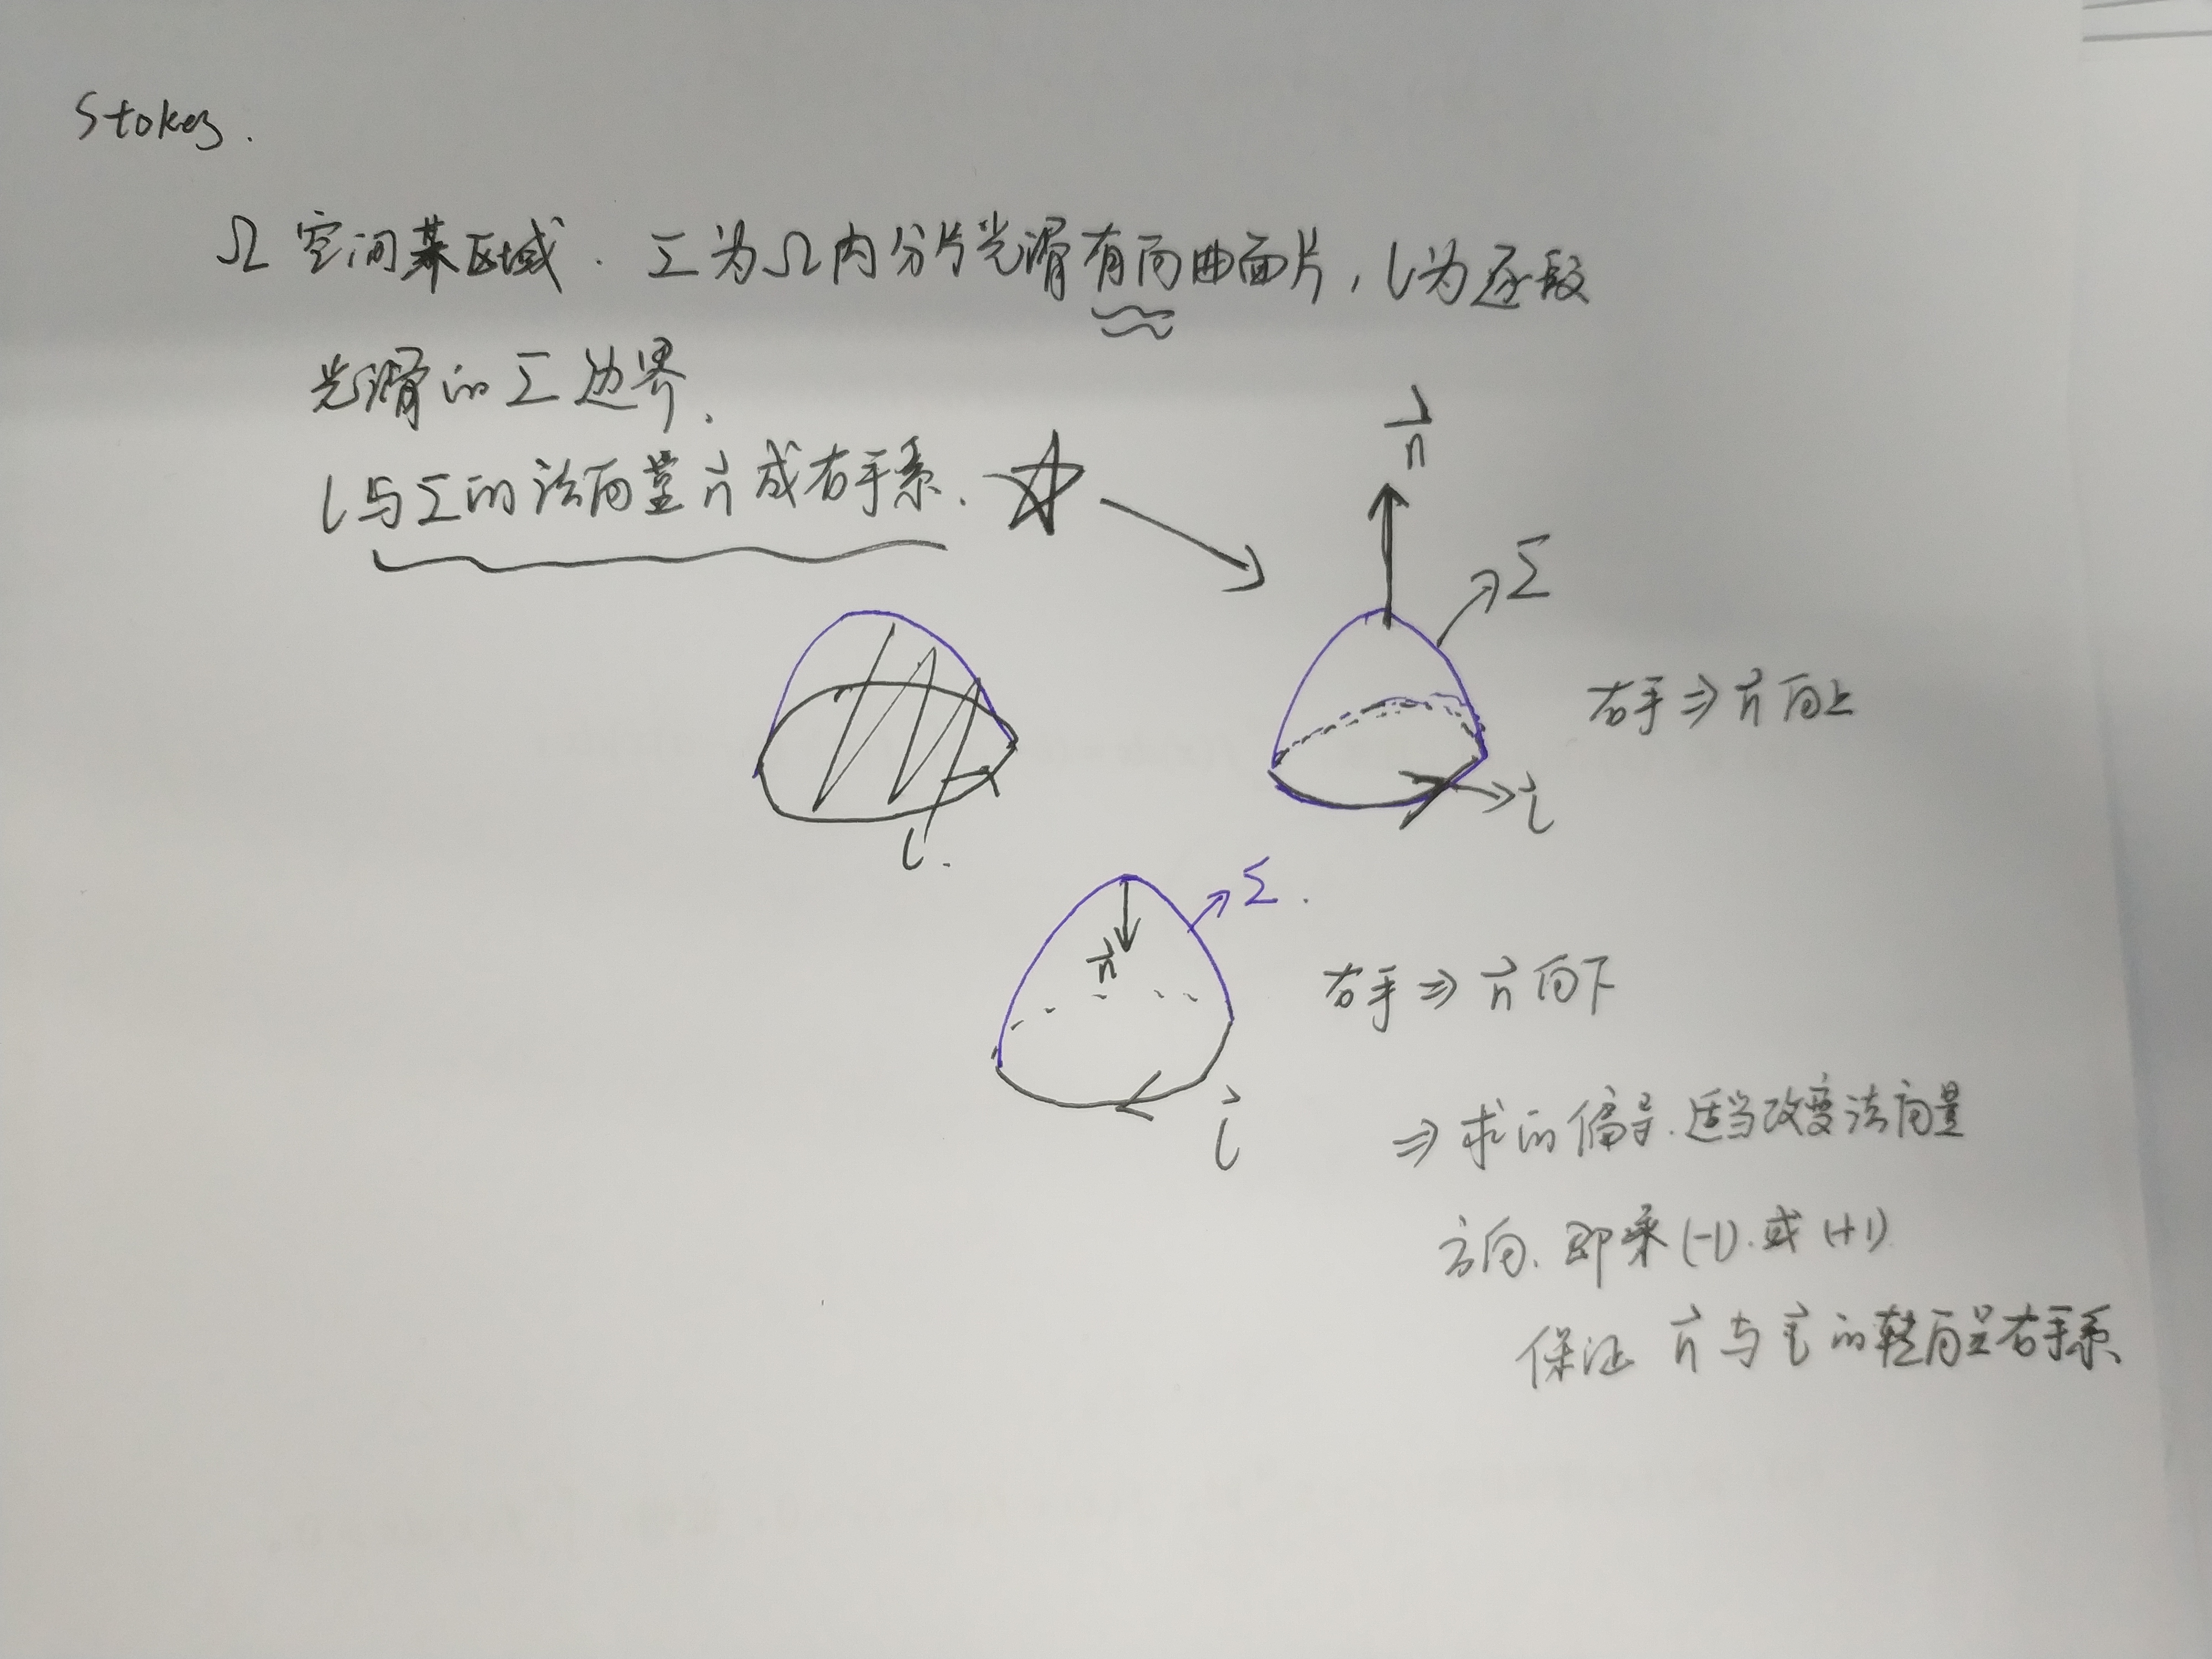 Stokes.
Ω 空间某区域. Σ为Ω内分片光滑有向曲面片, l为逐段
光滑的Σ边界.
l与Σ的法向量 n⃗ 成右手系.
n⃗
Σ
右手⇒ n⃗ 向上
l⃗
l.
Σ.
n⃗
右手⇒ n⃗ 向下
l⃗
⇒ 求的偏导.适当改变法向量
方向.即乘(-1).或(+1)
保证 n⃗ 与 l⃗ 的转向呈右手系.